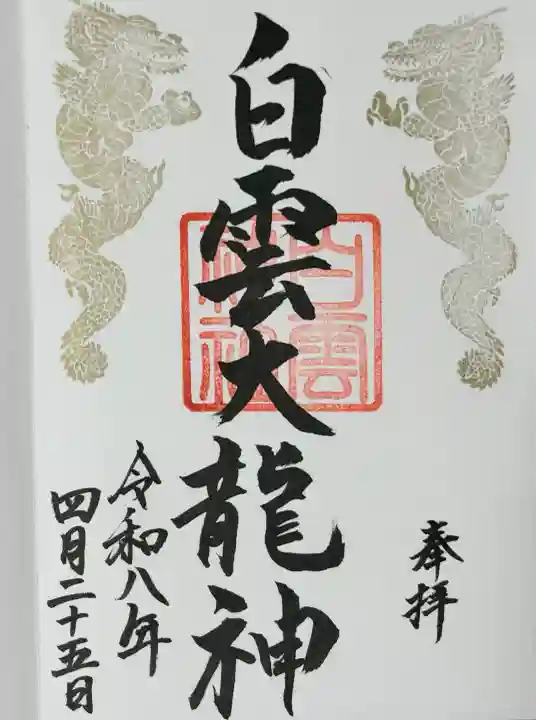 奉拝
白雲大龍神
白雲
神社
令和八年
四月二十五日